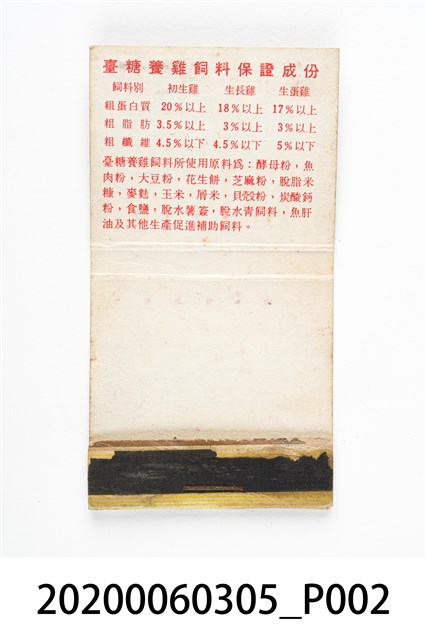 臺糖養雞飼料保證成份
飼料別 初生雞 生長雞 生蛋雞
粗蛋白質 20%以上 18%以上 17%以上
粗脂肪 3.5%以上 3%以上 3%以上
粗纖維 4.5%以下 4.5%以下 5%以下
臺糖養雞飼料所使用原料爲：酵母粉，魚
肉粉，大豆粉，花生餅，芝麻粉，脫脂米
糠，麥麩，玉米，屑米，貝殼粉，炭酸鈣
粉，食鹽，脫水薯簽，脫水青飼料，魚肝
油及其他生產促進補助飼料。
20200060305_P002